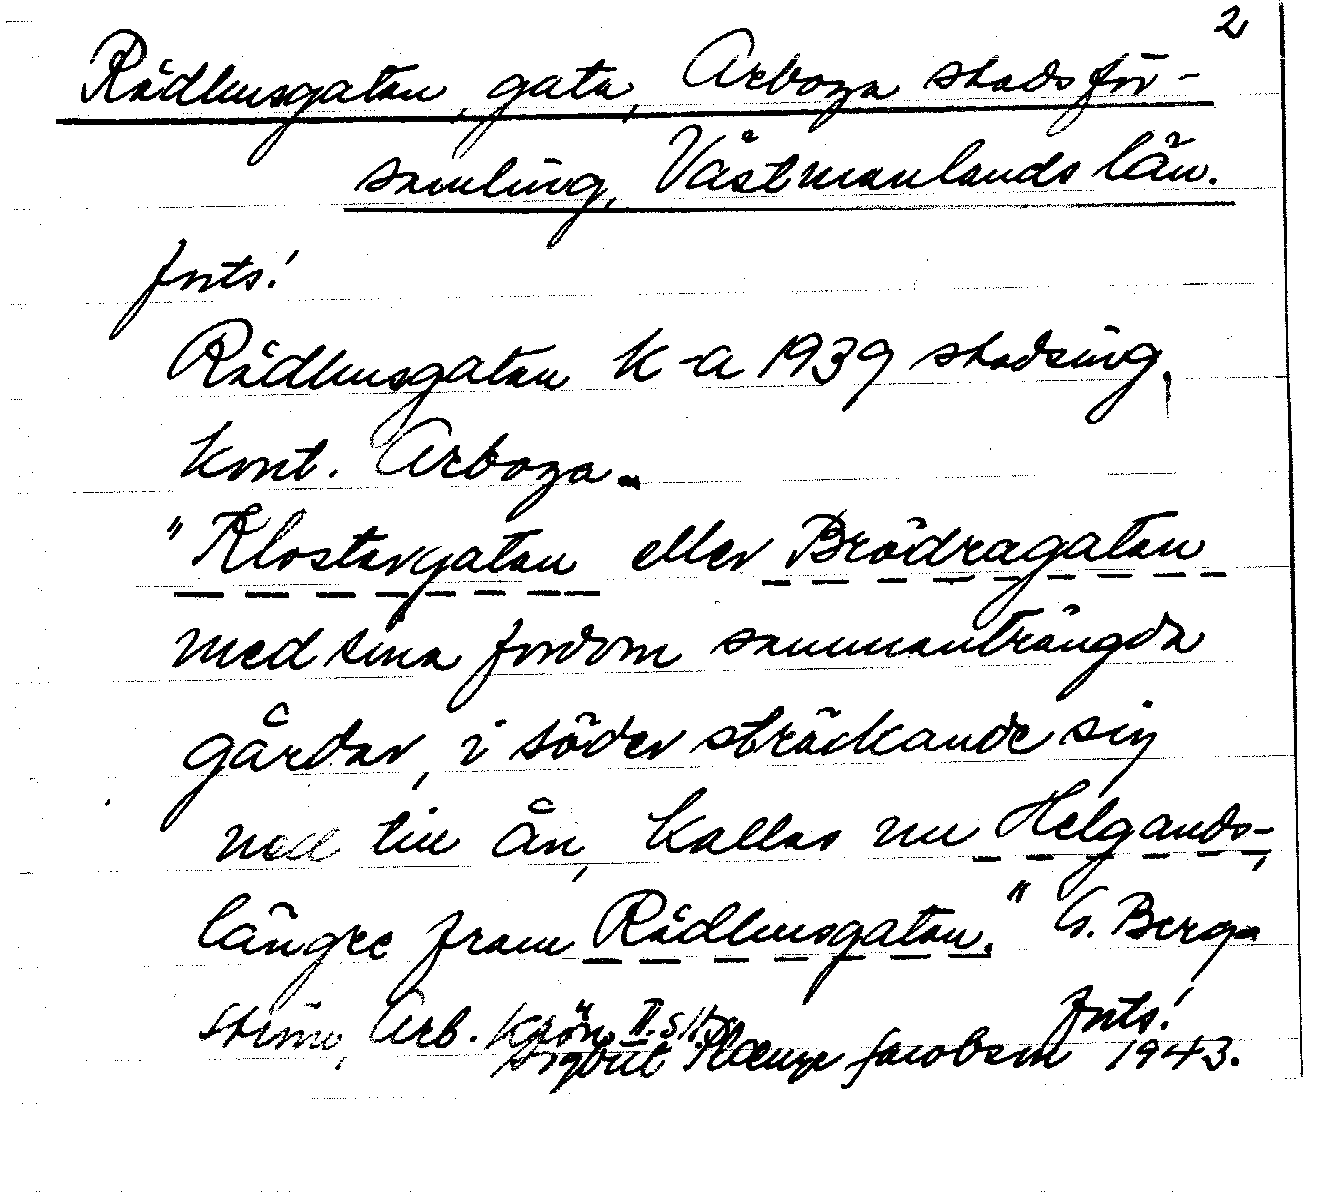 2
Rådhusgatan, gata, Arboga stadsför-
samling, Västmanlands län.
forts!
Rådhusgatan K-a 1939 stadsing.
kont. Arboga.
"Klostergatan eller Brödragatan
med sina fordom sammanträngda
gårdar, i söder sträckande sig
ned till ån, kallas nu Helgands-,
längre fram Rådhusgatan." G. Berg-
ström, Arb. Krön. II. s.
forts!
Sigbrit Plænge Jacobson 1943.